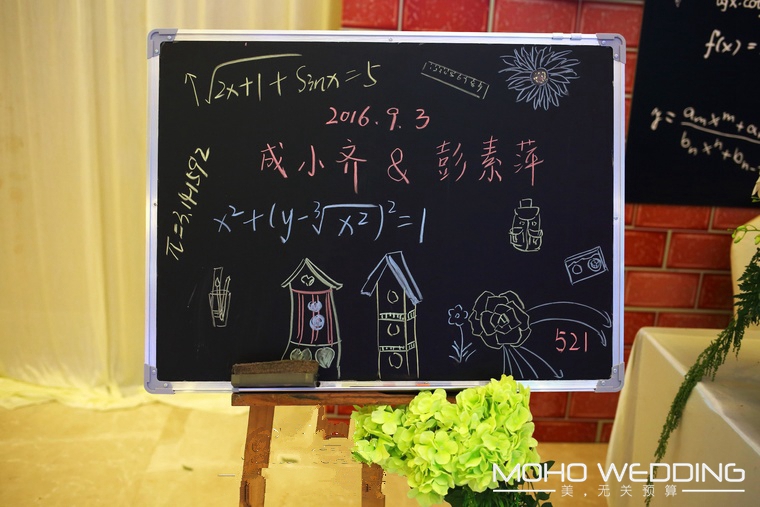 √2x+1 + Sinx = 5
2016.9.3
成小齐 & 彭素萍
π=3.141592
x²+(y-³√x²)²=1
521
f(x) =
MOHO WEDDING
美,无关预算